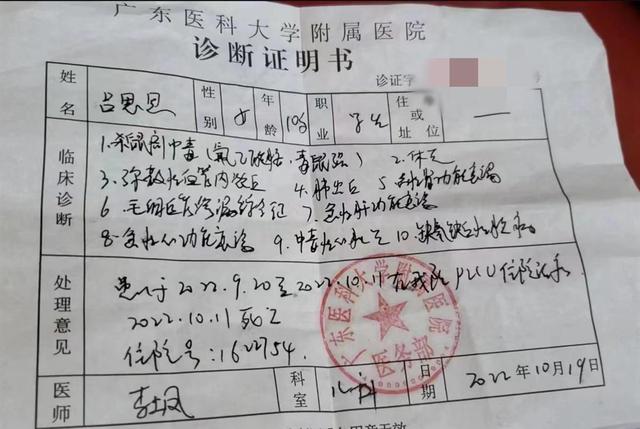 广东医科大学附属医院
诊断证明书
诊证字
姓名 吕思思 性别 女 年龄 10岁 职业 学生 住址或单位 —
临床诊断
1.杀鼠剂中毒(氟乙酰胺、毒鼠强) 2.休克
3.弥散性血管内凝血 4.肺出血 5.急性肾功能衰竭
6.毛细血管渗漏综合征 7.急性肝功能衰竭
8.急性心功能衰竭 9.中毒性心肌炎 10.缺氧缺血性脑病
处理意见
患儿于2022.9.20至2022.10.11在我院PICU住院治疗
2022.10.11死亡
住院号:1622754.
广东医科大学附属医院
医务部
医师 科室 儿科 日期 2022年10月19日